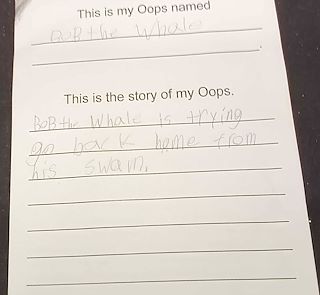 This is my Oops named
BoB the Whale
This is the story of my Oops.
BoB the Whale is trying
go back home from
his swam.